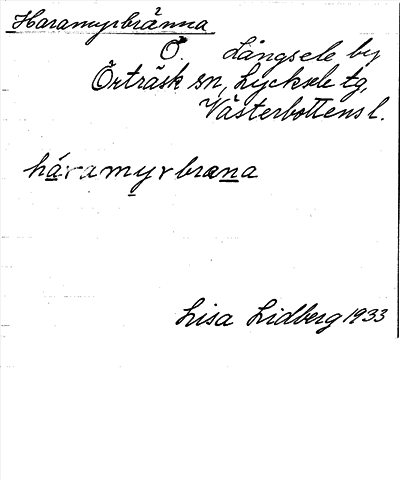 Haramyrbränna
Ö. Långsele by
Örträsk sn, Lycksele tg,
Västerbottens l.
háramyrbrana
Lisa Lidberg 1933